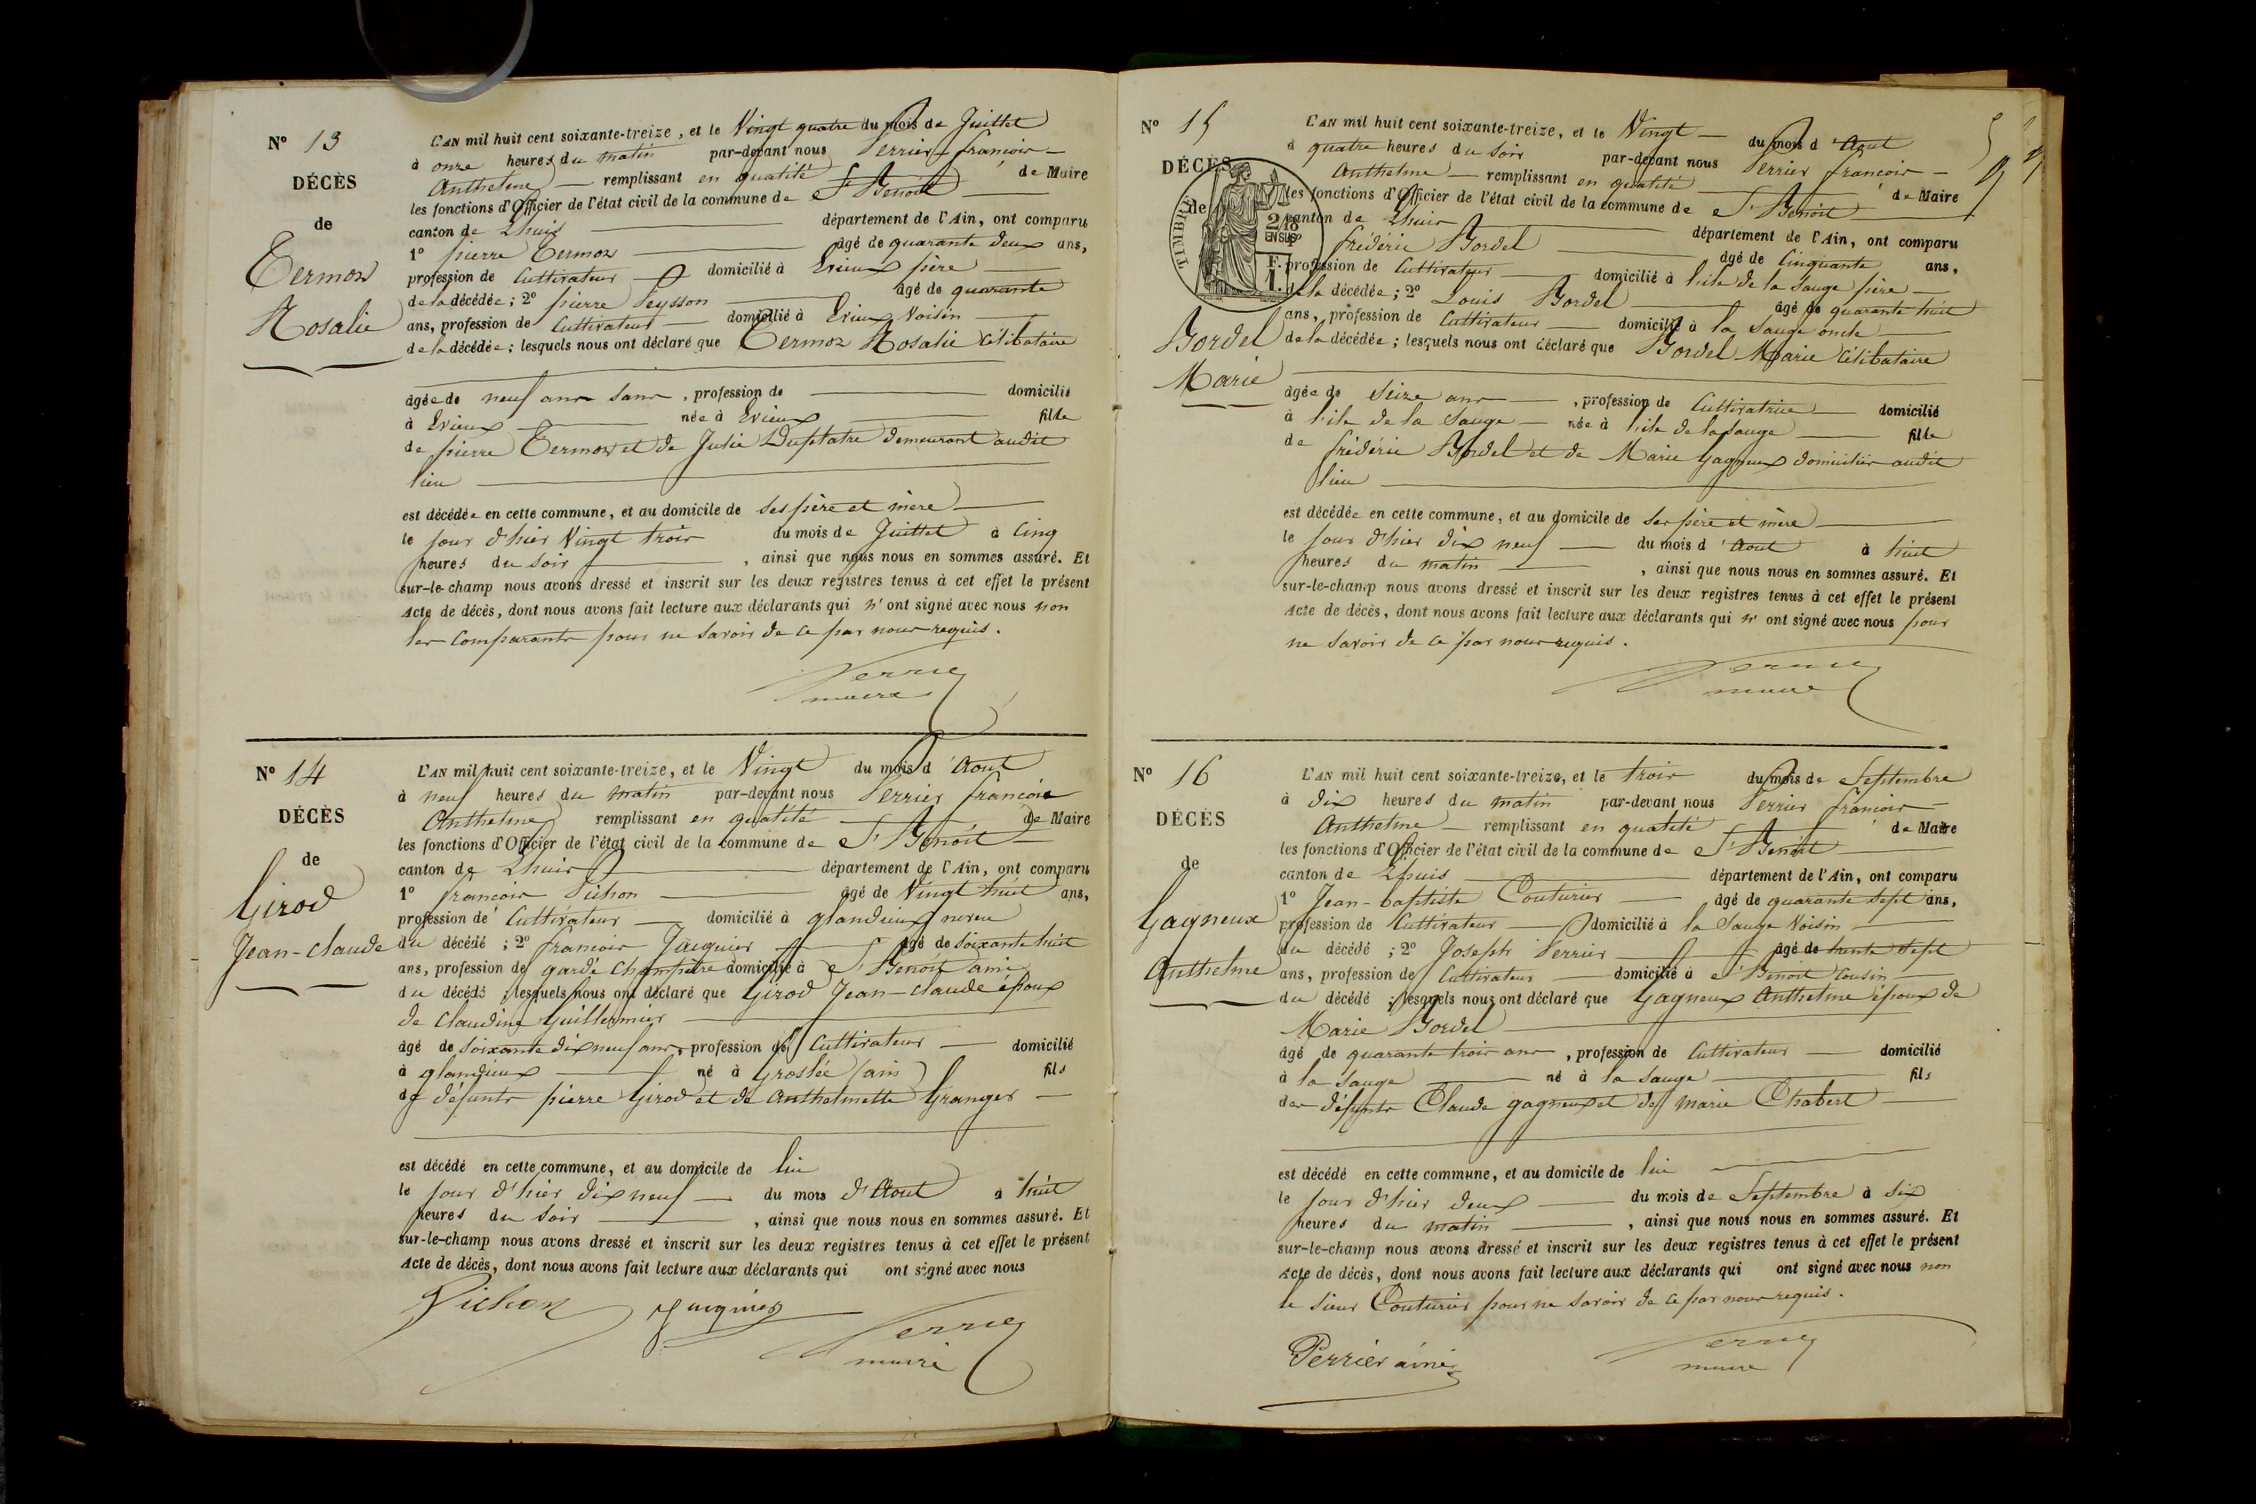 N° 13
DÉCÈS
de
Termoz
Rosalie
L'AN mil huit cent soixante-treize, et le Vingt quatre du mois de Juillet
à onze heures du matin par-devant nous Perrier françois
Anthelme remplissant en qualité de Maire
les fonctions d'Officier de l'état civil de la commune de St Benoit
canton de Lhuis département de l'Ain, ont comparu
1° pierre Termoz âgé de quarante deux ans,
profession de Cultivateur domicilié à Evieux père
de la décédée ; 2° pierre Peysson âgé de quarante
ans, profession de Cultivateur domicilié à Evieux Voisin
de la décédée ; lesquels nous ont déclaré que Termoz Rosalie célibataire
âgée de neuf ans sans , profession de domicilié
à Evieux née à Evieux fille
de pierre Termoz et de Julie Duplatre demeurant audit
lieu
est décédée en cette commune, et au domicile de ses père et mère
le jour d'hier Vingt trois du mois de Juillet à Cinq
heures du soir , ainsi que nous nous en sommes assuré. Et
sur-le-champ nous avons dressé et inscrit sur les deux registres tenus à cet effet le présent
Acte de décès, dont nous avons fait lecture aux déclarants qui n'ont signé avec nous non
les comparants pour ne savoir de ce par nous requis.
Perrier
maire
N° 14
DÉCÈS
de
Girod
Jean-claude
L'AN mil huit cent soixante-treize, et le Vingt du mois d'Aout
à neuf heures du matin par-devant nous Perrier françois
Anthelme remplissant en qualité de Maire
les fonctions d'Officier de l'état civil de la commune de St Benoit
canton de Lhuis département de l'Ain, ont comparu
1° françois Pichon âgé de Vingt huit ans,
profession de Cultivateur domicilié à glandieux neveu
du décédé ; 2° françois Jacquier âgé de soixante huit
ans, profession de garde Champêtre domicilié à St Benoit ami
du décédé ; lesquels nous ont déclaré que Girod Jean-claude époux
de Claudine Guillermier
âgé de soixante dix neuf ans, profession de Cultivateur domicilié
à glandieux né à Groslée (ain) fils
de défunts pierre Girod et de Anthelmette Granger
est décédé en cette commune, et au domicile de lui
le jour d'hier dix neuf du mois d'Aout à huit
heures du soir , ainsi que nous nous en sommes assuré. Et
sur-le-champ nous avons dressé et inscrit sur les deux registres tenus à cet effet le présent
Acte de décès, dont nous avons fait lecture aux déclarants qui ont signé avec nous
Pichon Jacquier Perrier
maire
N° 15
DÉCÈS
de
Bordel
Marie
TIMBRE
2/10
EN SUS
L'AN mil huit cent soixante-treize, et le Vingt du mois d'Aout
à quatre heures du soir par-devant nous Perrier françois
Anthelme remplissant en qualité de Maire
les fonctions d'Officier de l'état civil de la commune de St Benoit
canton de Lhuis département de l'Ain, ont comparu
frédéric Bordel âgé de Cinquante ans,
profession de Cultivateur domicilié à l'ile de la Sauge père
de la décédée ; 2° Louis Bordel âgé de quarante huit
ans, profession de Cultivateur domicilié à la Sauge oncle
de la décédée ; lesquels nous ont déclaré que Bordel Marie célibataire
âgée de Seize ans , profession de Cultivatrice domicilié
à l'ile de la Sauge née à l'ile de la Sauge fille
de frédéric Bordel et de Marie Gagneux domiciliés audit
lieu
est décédée en cette commune, et au domicile de ses père et mère
le jour d'hier dix neuf du mois d'Aout à huit
heures du matin , ainsi que nous nous en sommes assuré. Et
sur-le-champ nous avons dressé et inscrit sur les deux registres tenus à cet effet le présent
Acte de décès, dont nous avons fait lecture aux déclarants qui n'ont signé avec nous pour
ne savoir de ce par nous requis.
Perrier
maire
N° 16
DÉCÈS
de
Gagneux
Anthelme
L'AN mil huit cent soixante-treize, et le trois du mois de Septembre
à dix heures du matin par-devant nous Perrier françois
Anthelme remplissant en qualité de Maire
les fonctions d'Officier de l'état civil de la commune de St Benoit
canton de Lhuis département de l'Ain, ont comparu
1° Jean-baptiste Couturier âgé de quarante sept ans,
profession de Cultivateur domicilié à la Sauge Voisin
du décédé ; 2° Joseph Perrier âgé de trente sept
ans, profession de Cultivateur domicilié à St Benoit Cousin
du décédé ; lesquels nous ont déclaré que Gagneux Anthelme époux de
Marie Bordel
âgé de quarante trois ans , profession de Cultivateur domicilié
à la Sauge né à la Sauge fils
des défunts Claude gagneux et de marie Chabert
est décédé en cette commune, et au domicile de lui
le jour d'hier deux du mois de Septembre à six
heures du matin , ainsi que nous nous en sommes assuré. Et
sur-le-champ nous avons dressé et inscrit sur les deux registres tenus à cet effet le présent
Acte de décès, dont nous avons fait lecture aux déclarants qui ont signé avec nous non
le sieur Couturier pour ne savoir de ce par nous requis.
Perrier ainé Perrier
maire